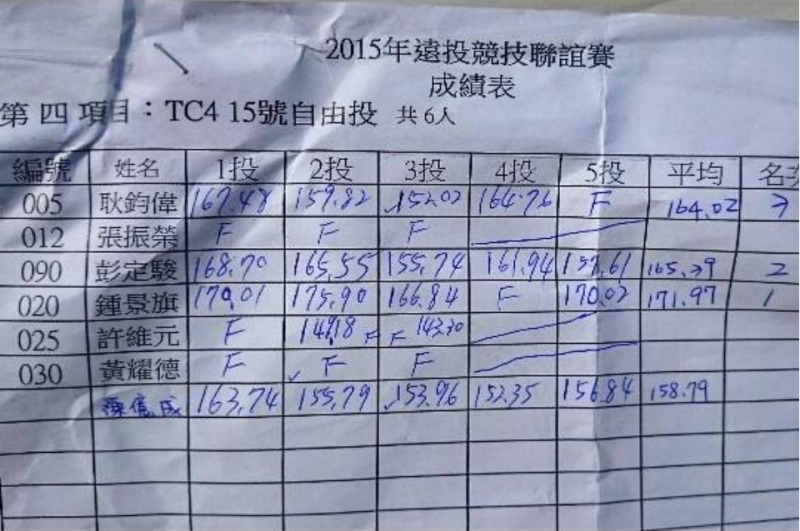 2015年遠投競技聯誼賽
成績表
第四項目：TC4 15號自由投 共6人
編號 姓名 1投 2投 3投 4投 5投 平均 名次
005 耿鈞偉 167.48 159.82 152.02 164.76 F 164.02 3
012 張振榮 F F F
090 彭定駿 168.70 165.55 155.74 161.94 157.61 165.39 2
020 鍾景旗 170.01 175.90 166.84 F 170.02 171.97 1
025 許維元 F F F 143.30
030 黃耀德 F F F
163.74 155.79 153.96 152.35 156.84 158.79